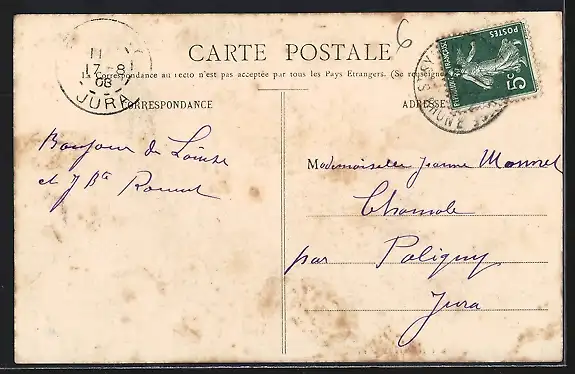 CARTE POSTALE
6
La Correspondance au recto n'est pas acceptée par tous les Pays Etrangers. (Se renseigne
CORRESPONDANCE
ADRESSE
11
17-8
08
JURA
POSTES
5c
RHONE
Bonjour de Louise
et J Bte
Mademoiselle Jeanne Monnet
Chamole
par Poligny
Jura